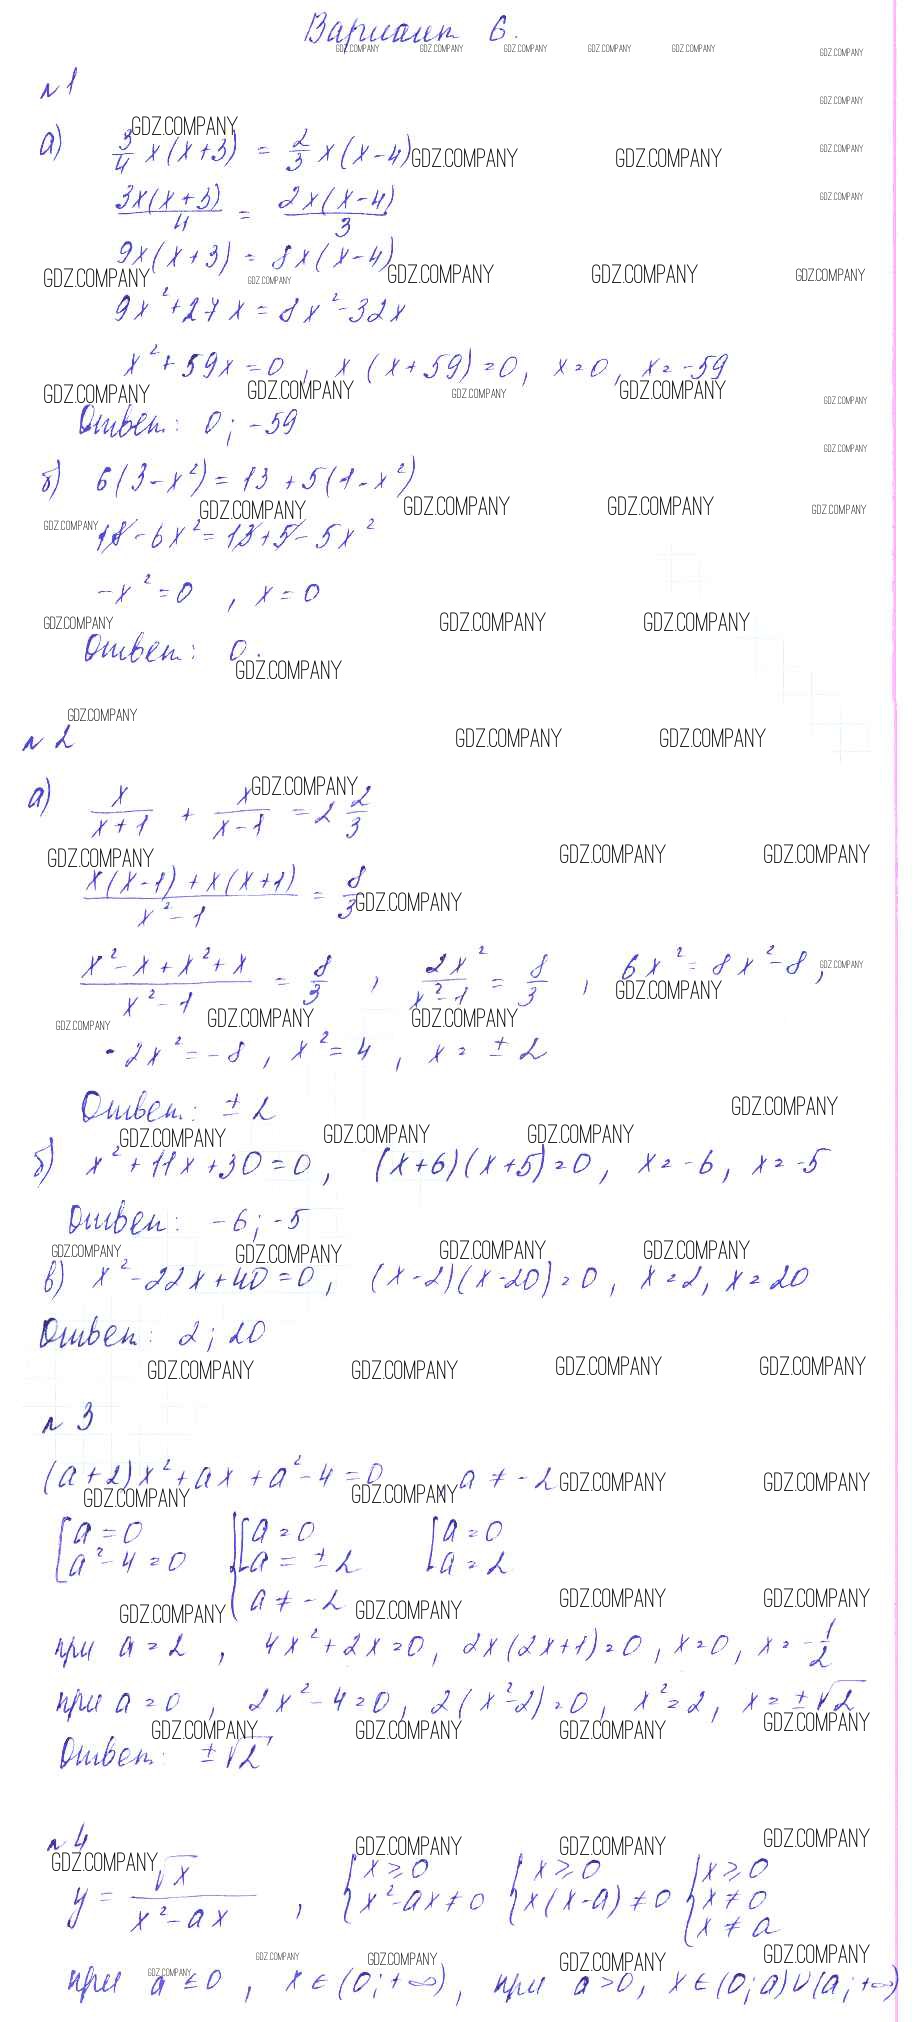 Вариант 6.
№1
а) 3/4 x(x+3) = 2/3 x(x-4)
3x(x+3)/4 = 2x(x-4)/3
9x(x+3) = 8x(x-4)
9x²+27x = 8x²-32x
x²+59x=0, x(x+59)=0, x=0, x=-59
Ответ: 0; -59
б) 6(3-x²)=13+5(1-x²)
18-6x²=13+5-5x²
-x²=0, x=0
Ответ: 0.
№2
а) x/(x+1) + x/(x-1) = 2 2/3
(x(x-1)+x(x+1))/(x²-1) = 8/3
(x²-x+x²+x)/(x²-1) = 8/3, 2x²/(x²-1) = 8/3, 6x²=8x²-8,
-2x²=-8, x²=4, x=±2
Ответ: ±2
б) x²+11x+30=0, (x+6)(x+5)=0, x=-6, x=-5
Ответ: -6; -5
в) x²-22x+40=0, (x-2)(x-20)=0, x=2, x=20
Ответ: 2; 20
№3
(a+2)x²+ax+a²-4=0, a≠-2
[a=0 {[a=0 [a=0
a²-4=0 a=±2 a=2
a≠-2
при a=2, 4x²+2x=0, 2x(2x+1)=0, x=0, x=-1/2
при a=0, 2x²-4=0, 2(x²-2)=0, x²=2, x=±√2
Ответ: ±√2
№4
y = √x/(x²-ax), {x≥0 {x≥0 {x≥0
x²-ax≠0 x(x-a)≠0 x≠0
x≠a
при a≤0, x∈(0;+∞), при a>0, x∈(0;a)∪(a;+∞)
GDZ.COMPANY